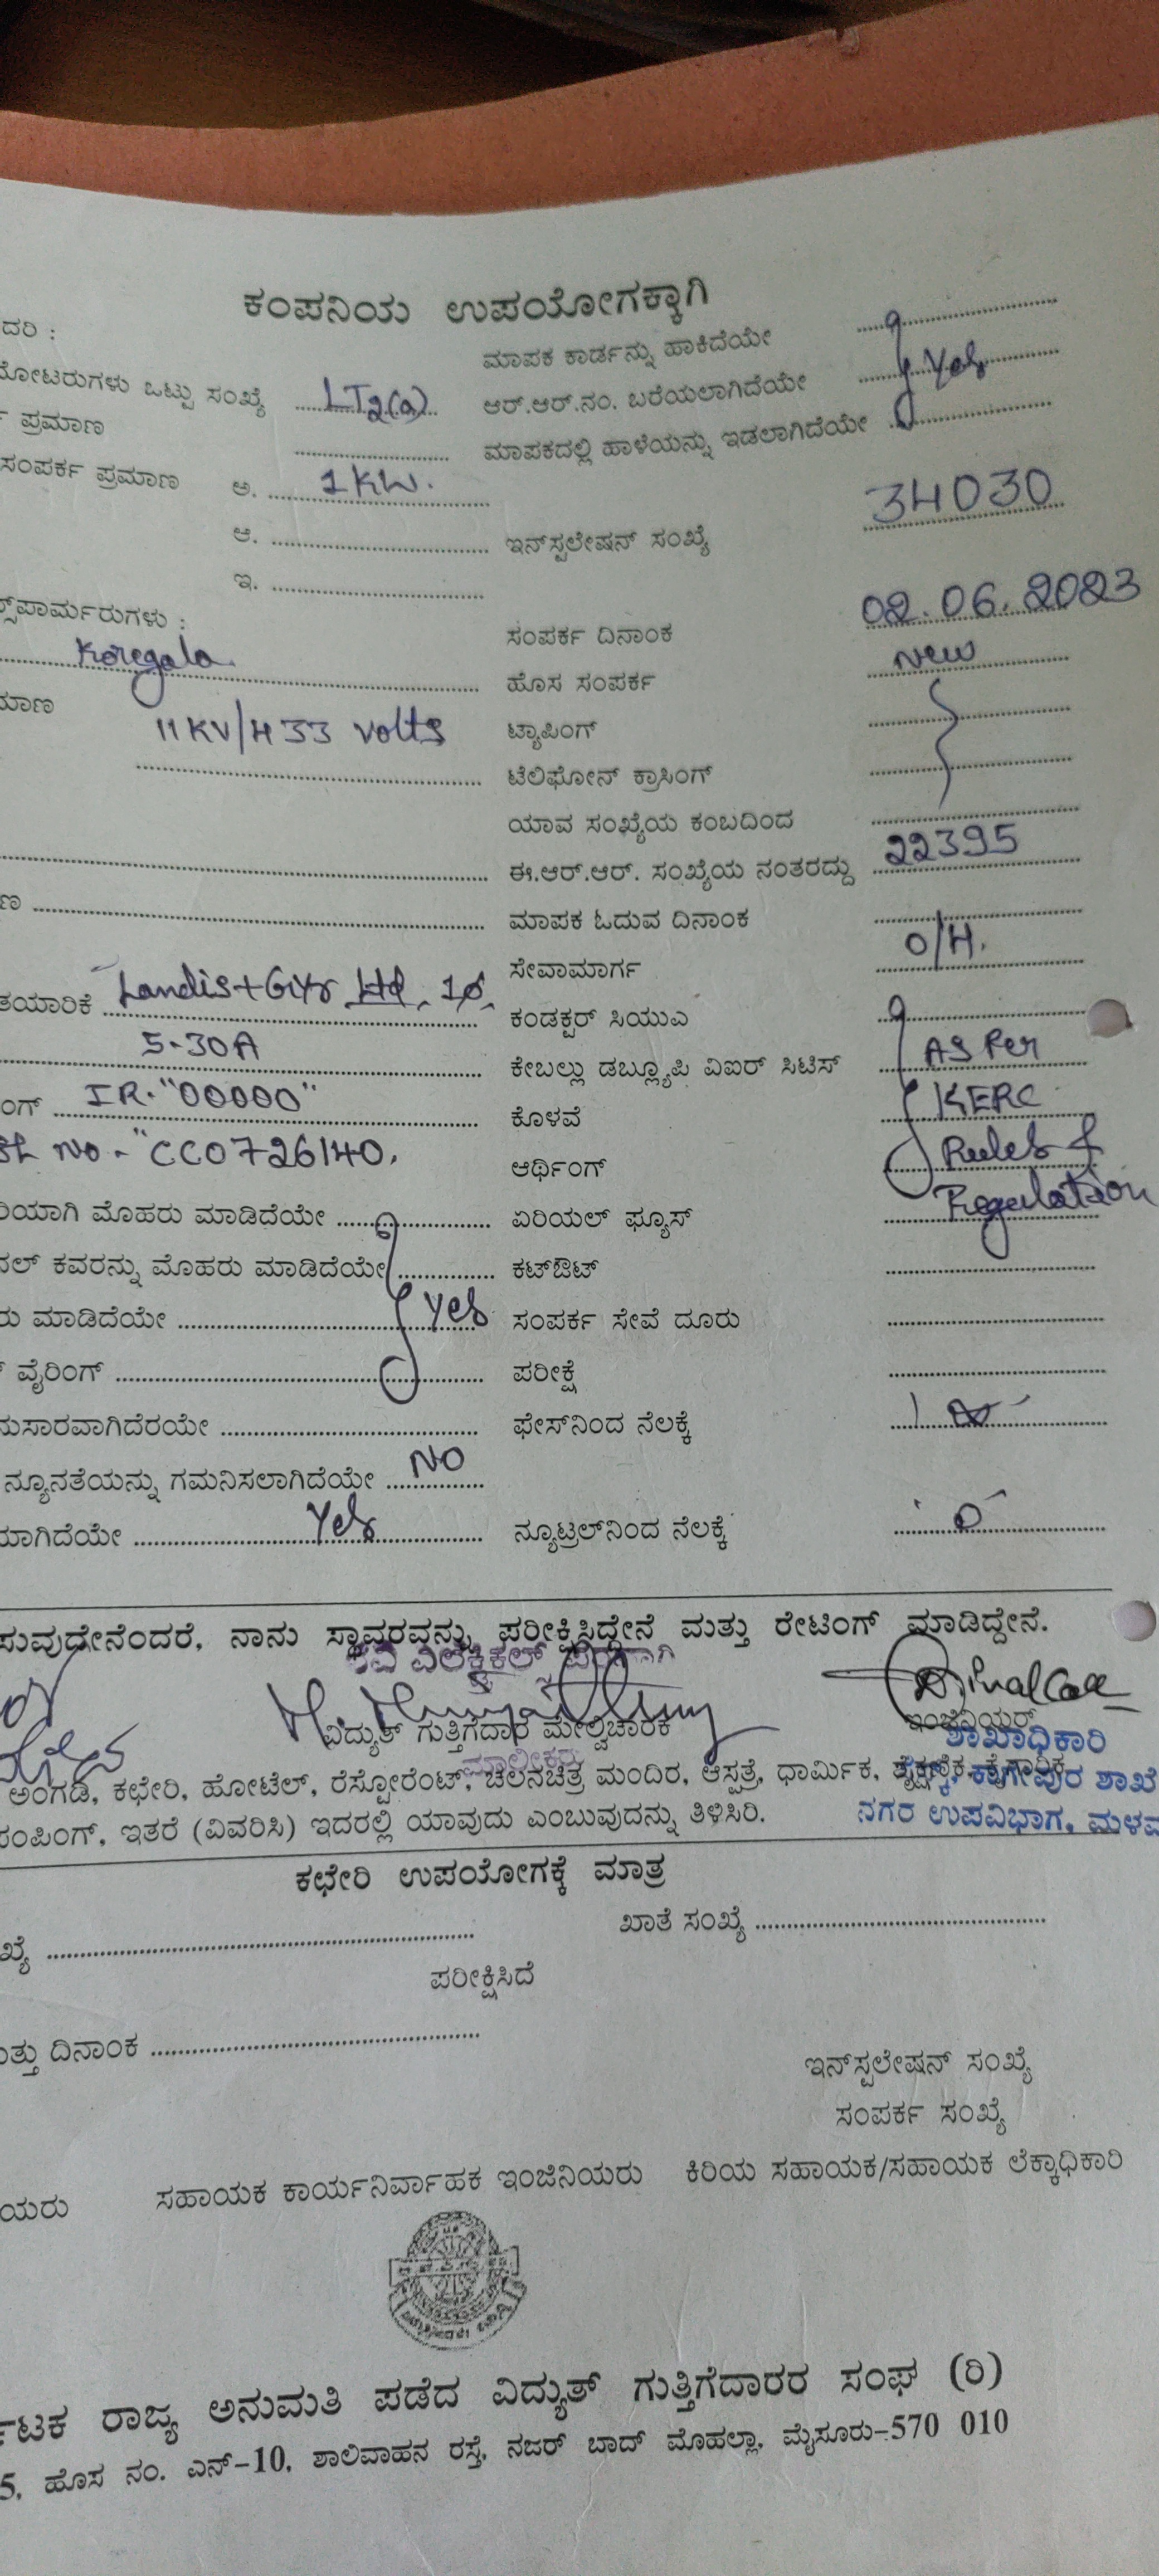 ಕಂಪನಿಯ ಉಪಯೋಗಕ್ಕಾಗಿ
ದರಿ :
ಮಾಪಕ ಕಾರ್ಡನ್ನು ಹಾಕಿದೆಯೇ
ಮೋಟರುಗಳು ಒಟ್ಟು ಸಂಖ್ಯೆ LT2(a) ಆರ್.ಆರ್.ನಂ. ಬರೆಯಲಾಗಿದೆಯೇ Yes
ಪ್ರಮಾಣ ಮಾಪಕದಲ್ಲಿ ಹಾಳೆಯನ್ನು ಇಡಲಾಗಿದೆಯೇ
ಸಂಪರ್ಕ ಪ್ರಮಾಣ ಅ. 1KW.
ಆ. ಇನ್‌ಸ್ಪಲೇಷನ್ ಸಂಖ್ಯೆ 34030
ಇ.
ಸ್‌ಪಾರ್ಮರುಗಳು : ಸಂಪರ್ಕ ದಿನಾಂಕ 02.06.2023
Koregala ಹೊಸ ಸಂಪರ್ಕ New
ಮಾಣ 11KV/433 volts ಟ್ಯಾಪಿಂಗ್
ಟೆಲಿಫೋನ್ ಕ್ರಾಸಿಂಗ್
ಯಾವ ಸಂಖ್ಯೆಯ ಕಂಬದಿಂದ
ಈ.ಆರ್.ಆರ್. ಸಂಖ್ಯೆಯ ನಂತರದ್ದು 22395
ಣ ಮಾಪಕ ಓದುವ ದಿನಾಂಕ
ಸೇವಾಮಾರ್ಗ O/H.
ತಯಾರಿಕೆ Landis+Gyr Ltd. 1ø ಕಂಡಕ್ಟರ್ ಸಿಯುಎ
5-30A ಕೇಬಲ್ಲು ಡಬ್ಲ್ಯೂಪಿ ವಿಐರ್ ಸಿಟಿಸ್ AS Per
ಂಗ್ IR. "00000" ಕೊಳವೆ KERC
SL No - "CC0726140, ಆರ್ಥಿಂಗ್ Rules &
ರಿಯಾಗಿ ಮೊಹರು ಮಾಡಿದೆಯೇ ಏರಿಯಲ್ ಫ್ಯೂಸ್ Regulation
ನಲ್ ಕವರನ್ನು ಮೊಹರು ಮಾಡಿದೆಯೇ ಕಟ್‌ಔಟ್
ರು ಮಾಡಿದೆಯೇ Yes ಸಂಪರ್ಕ ಸೇವೆ ದೂರು
ವೈರಿಂಗ್ ಪರೀಕ್ಷೆ
ನುಸಾರವಾಗಿದೆರಯೇ ಫೇಸ್‌ನಿಂದ ನೆಲಕ್ಕೆ
ನ್ಯೂನತೆಯನ್ನು ಗಮನಿಸಲಾಗಿದೆಯೇ NO
ಮಾಗಿದೆಯೇ Yes ನ್ಯೂಟ್ರಲ್‌ನಿಂದ ನೆಲಕ್ಕೆ
ಸುವುದೇನೆಂದರೆ, ನಾನು ಸ್ಥಾವರವನ್ನು ಪರೀಕ್ಷಿಸಿದ್ದೇನೆ ಮತ್ತು ರೇಟಿಂಗ್ ಮಾಡಿದ್ದೇನೆ.
ವಿದ್ಯುತ್ ಗುತ್ತಿಗೆದಾರ ಮೇಲ್ವಿಚಾರಕ ಇಂಜಿನಿಯರ್
ಮಾಲೀಕರು ಶಾಖಾಧಿಕಾರಿ
ಅಂಗಡಿ, ಕಛೇರಿ, ಹೋಟೆಲ್, ರೆಸ್ಟೋರೆಂಟ್, ಚಲನಚಿತ್ರ ಮಂದಿರ, ಆಸ್ಪತ್ರೆ, ಧಾರ್ಮಿಕ,
ಪಂಪಿಂಗ್, ಇತರೆ (ವಿವರಿಸಿ) ಇದರಲ್ಲಿ ಯಾವುದು ಎಂಬುವುದನ್ನು ತಿಳಿಸಿರಿ. ನಗರ ಉಪವಿಭಾಗ,
ಕಛೇರಿ ಉಪಯೋಗಕ್ಕೆ ಮಾತ್ರ
ಖ್ಯೆ ಖಾತೆ ಸಂಖ್ಯೆ
ಪರೀಕ್ಷಿಸಿದೆ
ತ್ತು ದಿನಾಂಕ
ಇನ್‌ಸ್ಪಲೇಷನ್ ಸಂಖ್ಯೆ
ಸಂಪರ್ಕ ಸಂಖ್ಯೆ
ಯರು ಸಹಾಯಕ ಕಾರ್ಯನಿರ್ವಾಹಕ ಇಂಜಿನಿಯರು ಕಿರಿಯ ಸಹಾಯಕ/ಸಹಾಯಕ ಲೆಕ್ಕಾಧಿಕಾರಿ
ರ್ಟಕ ರಾಜ್ಯ ಅನುಮತಿ ಪಡೆದ ವಿದ್ಯುತ್ ಗುತ್ತಿಗೆದಾರರ ಸಂಘ (ರಿ)
5, ಹೊಸ ನಂ. ಎನ್-10, ಶಾಲಿವಾಹನ ರಸ್ತೆ, ನಜರ್ ಬಾದ್ ಮೊಹಲ್ಲಾ, ಮೈಸೂರು-570 010